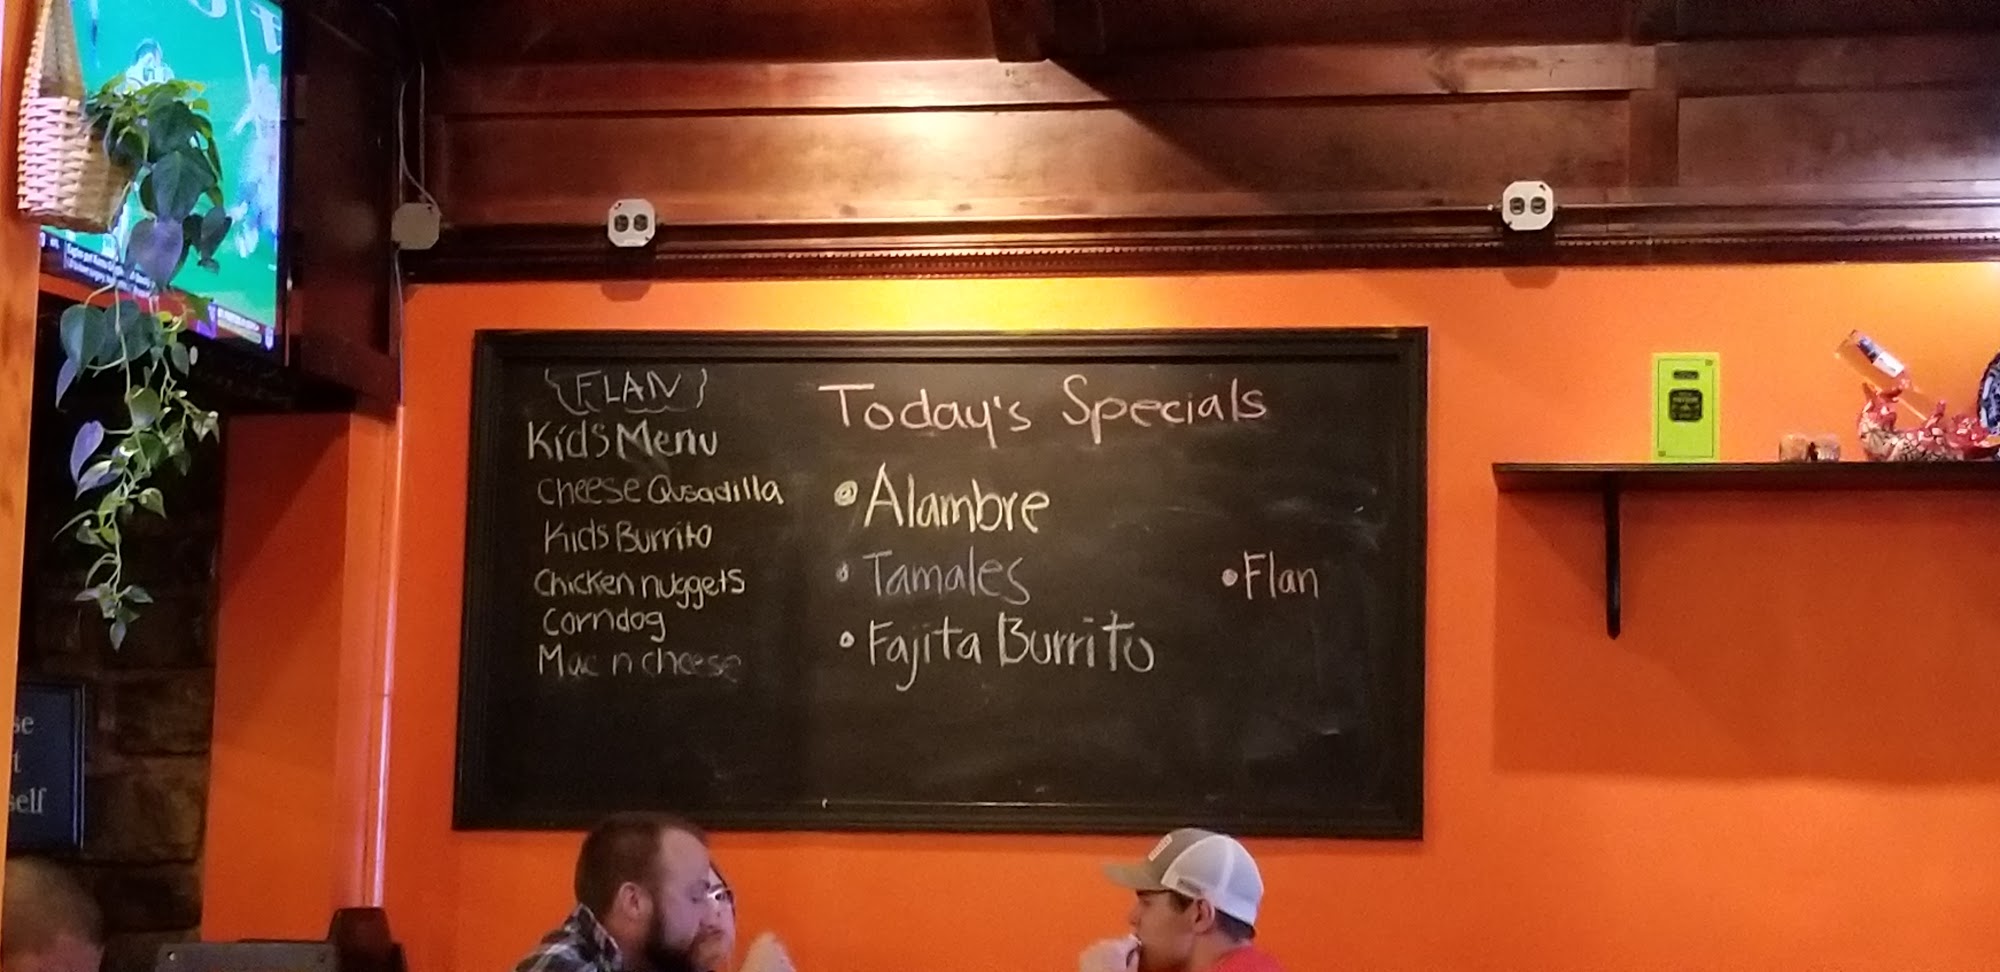 {FLAN}
Kids Menu
Cheese Qusadilla
Kids Burrito
Chicken nuggets
Corndog
Mac n cheese
Today's Specials
• Alambre
• Tamales
• Flan
• Fajita Burrito
self